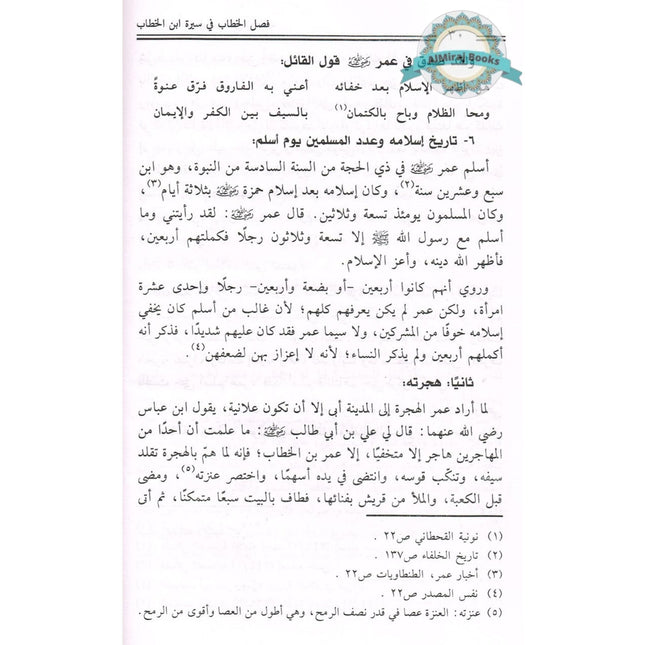 فصل الخطاب في سيرة ابن الخطاب
٣٠
AlMiraj Books
في عمر رضي الله عنه قول القائل:
الإسلام بعد خفائه أعني به الفاروق فرّق عنوةً
ومحا الظلام وباح بالكتمان(١) بالسيف بين الكفر والإيمان
٦- تاريخ إسلامه وعدد المسلمين يوم أسلم:
أسلم عمر رضي الله عنه في ذي الحجة من السنة السادسة من النبوة، وهو ابن
سبع وعشرين سنة(٢)، وكان إسلامه بعد إسلام حمزة رضي الله عنه بثلاثة أيام(٣)،
وكان المسلمون يومئذ تسعة وثلاثين. قال عمر رضي الله عنه: لقد رأيتني وما
أسلم مع رسول الله ﷺ إلا تسعة وثلاثون رجلًا فكملتهم أربعين،
فأظهر الله دينه، وأعز الإسلام.
وروي أنهم كانوا أربعين -أو بضعة وأربعين- رجلًا وإحدى عشرة
امرأة، ولكن عمر لم يكن يعرفهم كلهم؛ لأن غالب من أسلم كان يخفي
إسلامه خوفًا من المشركين، ولا سيما عمر فقد كان عليهم شديدًا، فذكر أنه
أكملهم أربعين ولم يذكر النساء؛ لأنه لا إعزاز بهن لضعفهن(٤).
ثانيًا: هجرته:
لما أراد عمر الهجرة إلى المدينة أبى إلا أن تكون علانية، يقول ابن عباس
رضي الله عنهما: قال لي علي بن أبي طالب رضي الله عنه: ما علمت أن أحدًا من
المهاجرين هاجر إلا متخفيًا، إلا عمر بن الخطاب؛ فإنه لما همّ بالهجرة تقلد
سيفه، وتنكّب قوسه، وانتضى في يده أسهمًا، واختصر عنزته(٥)، ومضى
قبل الكعبة، والملأ من قريش بفنائها، فطاف بالبيت سبعًا متمكنًا، ثم أتى
(١) نونية القحطاني ص٢٢ .
(٢) تاريخ الخلفاء ص١٣٧ .
(٣) أخبار عمر، الطنطاويات ص٢٢ .
(٤) نفس المصدر ص٢٢ .
(٥) عنزته: العنزة عصا في قدر نصف الرمح، وهي أطول من العصا وأقوى من الرمح.